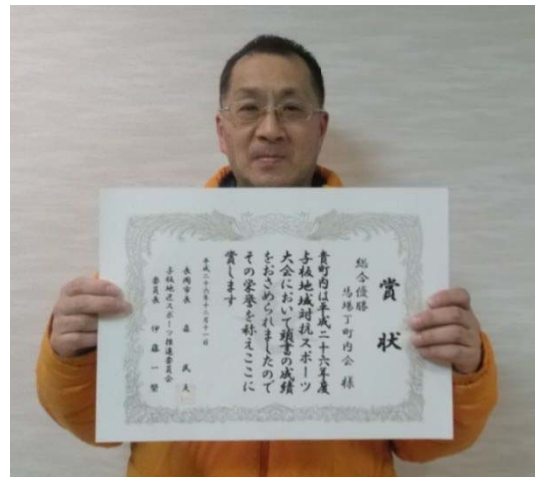 賞状
総合優勝
馬場丁町内会 様
貴町内は平成二十六年度
与板地域対抗スポーツ
大会において頭書の成績
をおさめられましたので
その栄誉を称えここに
賞します
平成二十六年十二月十一日
長岡市長 森 民夫
与板地区スポーツ推進委員会
委員長 伊藤一